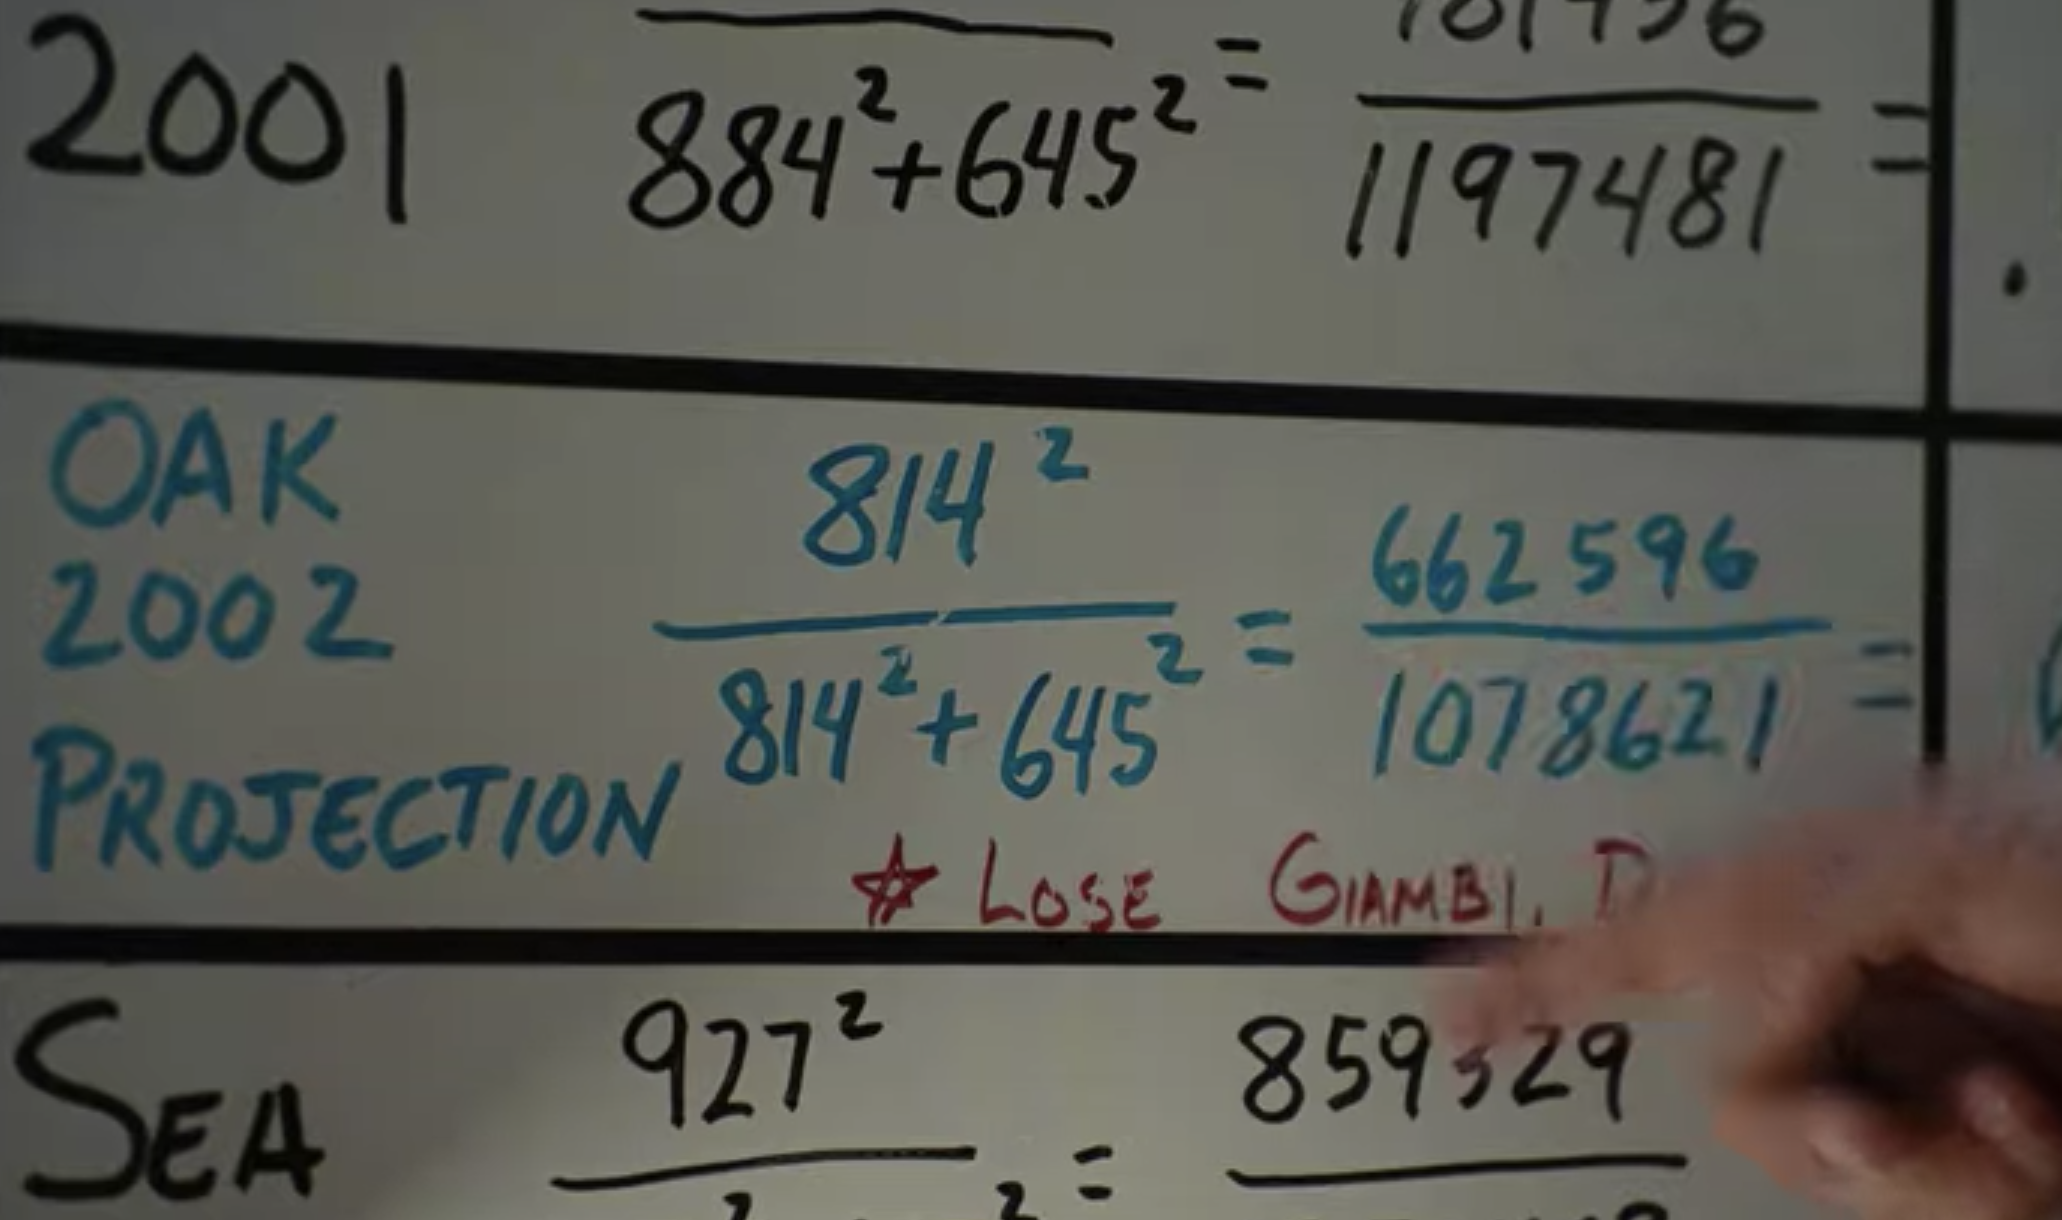 2001
884²+645² =
1197481 =
OAK
2002
PROJECTION
814²
814² + 645² =
662596
1078621 =
☆ LOSE GIAMBI,
SEA
927²
² ² =
859329